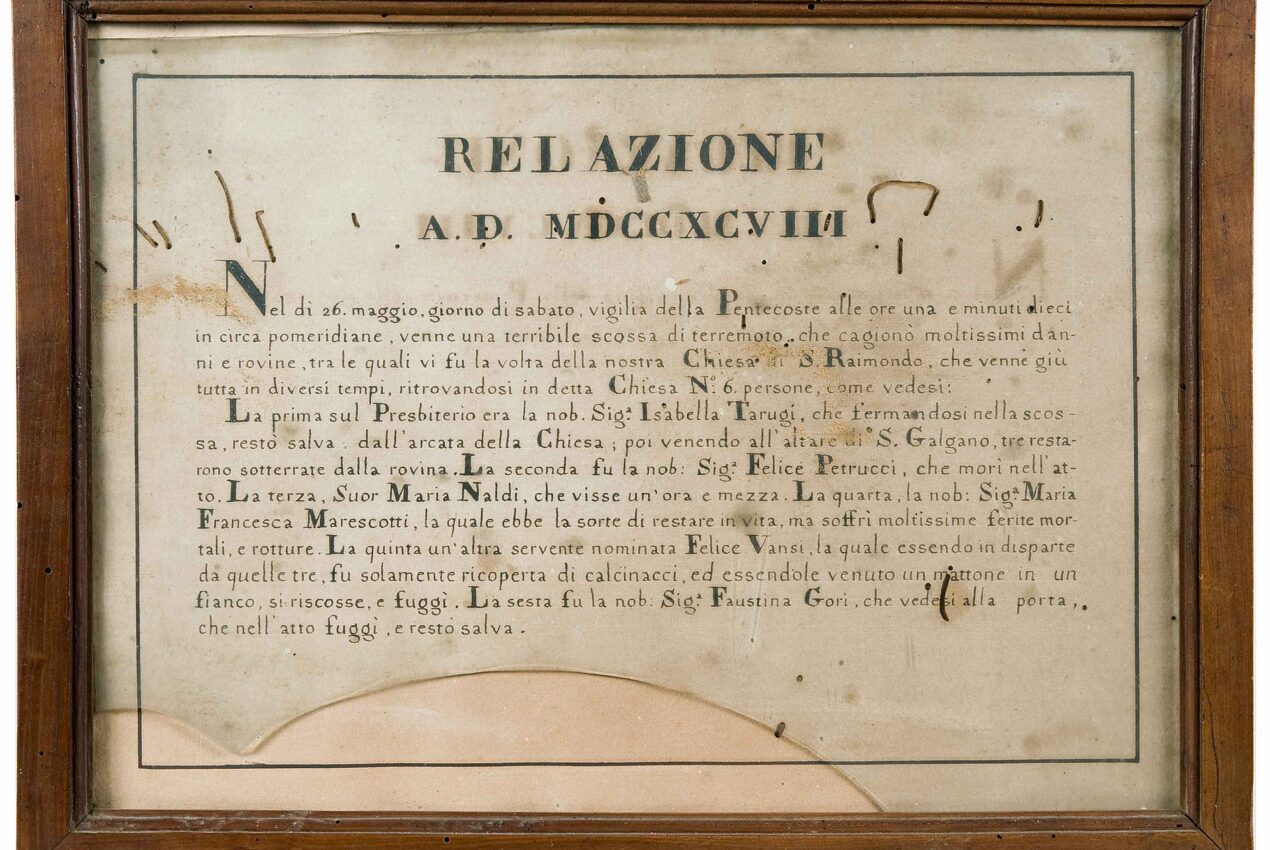 RELAZIONE
A. D. MDCCXCVIII
Nel dì 26. maggio, giorno di sabato, vigilia della Pentecoste alle ore una e minuti dieci
in circa pomeridiane, venne una terribile scossa di terremoto, che cagionò moltissimi dan-
ni e rovine, tra le quali vi fu la volta della nostra Chiesa di S. Raimondo, che venne giù
tutta in diversi tempi, ritrovandosi in detta Chiesa N.° 6. persone, come vedesi:
La prima sul Presbiterio era la nob. Sig.ª Isabella Tarugi, che fermandosi nella scos-
sa, restò salva dall'arcata della Chiesa; poi venendo all'altare di S. Galgano, tre resta-
rono sotterrate dalla rovina. La seconda fu la nob: Sig.ª Felice Petrucci, che morì nell'at-
to. La terza, Suor Maria Naldi, che visse un'ora e mezza. La quarta, la nob: Sig.ª Maria
Francesca Marescotti, la quale ebbe la sorte di restare in vita, ma soffrì moltissime ferite mor-
tali, e rotture. La quinta un'altra servente nominata Felice Vansi, la quale essendo in disparte
da quelle tre, fu solamente ricoperta di calcinacci, ed essendole venuto un mattone in un
fianco, si riscosse, e fuggì. La sesta fu la nob: Sig.ª Faustina Gori, che vedesi alla porta,
che nell'atto fuggì, e restò salva.